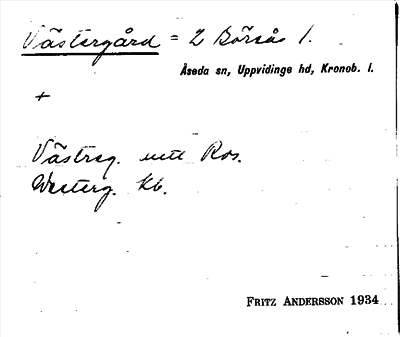 Västergård = 2 Börsås 1.
Åseda sn, Uppvidinge hd, Kronob. l.
+
Västreg. mtt Ros.
Westerg. Kb.
FRITZ ANDERSSON 1934